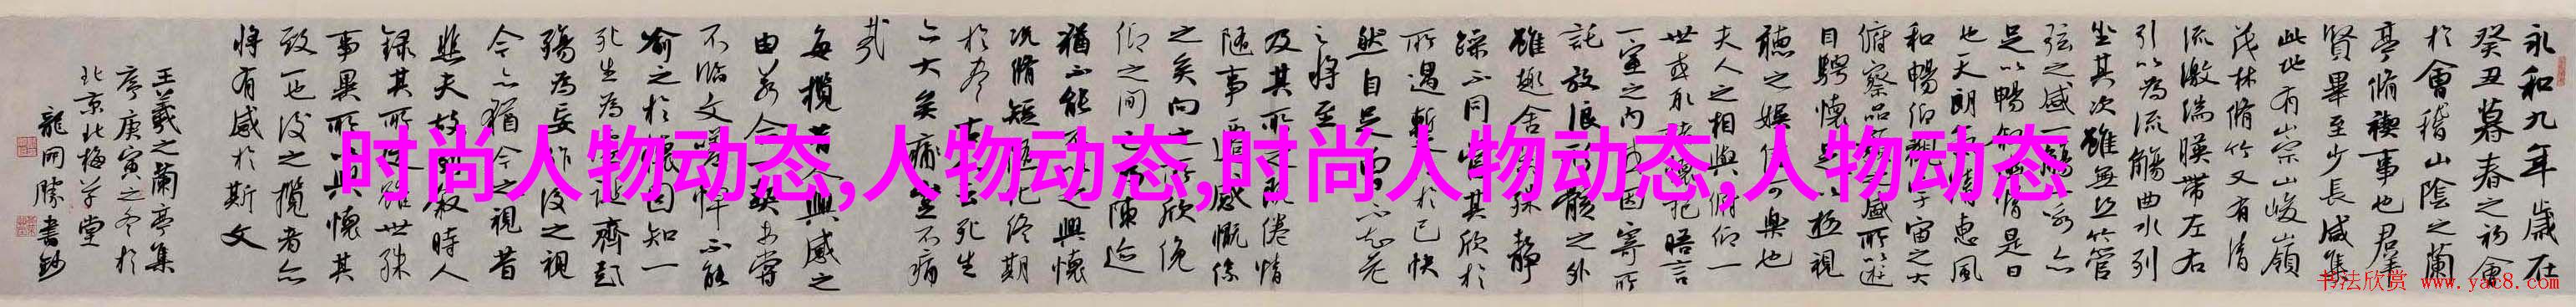 永和九年歲在
癸丑暮春之初會
於會稽山陰之蘭
亭脩禊事也群
賢畢至少長咸集
此地有崇山峻嶺
茂林脩竹又有清
流激湍暎帶左右
引以為流觴曲水列
坐其次雖無絲竹管
弦之盛一觴一詠亦
足以暢敘幽情是日
也天朗氣清惠風
和暢仰觀宇宙之大
俯察品類之盛所以遊
目騁懷足以極視
聽之娛信可樂也
夫人之相與俯仰一
世或取諸懷抱晤言
一室之內或因寄所
託放浪形骸之外
雖趣舍萬殊靜
躁不同當其欣於
所遇暫得於己快
然自足曾不知老
之將至
及其所之既倦情
隨事遷感慨係
之矣向之所欣俛
仰之間以為陳迹
猶不能不以之興懷
況脩短隨化終期
於盡古人云死生
亦大矣豈不痛
哉
每攬昔人興感之
由若合一契未嘗
不臨文嗟悼不能
喻之於懷固知一
死生為虛誕齊彭
殤為妄作後之視
今亦猶今之視昔
悲夫故列敘時人
錄其所述雖世殊
事異所以興懷其
致一也後之攬者亦
將有感於斯文
王羲之蘭亭集
序庚寅之冬於
北京北梅草堂
龍開勝書鈔
时尚人物动态,人物动态,时尚人物动态,人物动态
书法欣赏 www.yac8.com